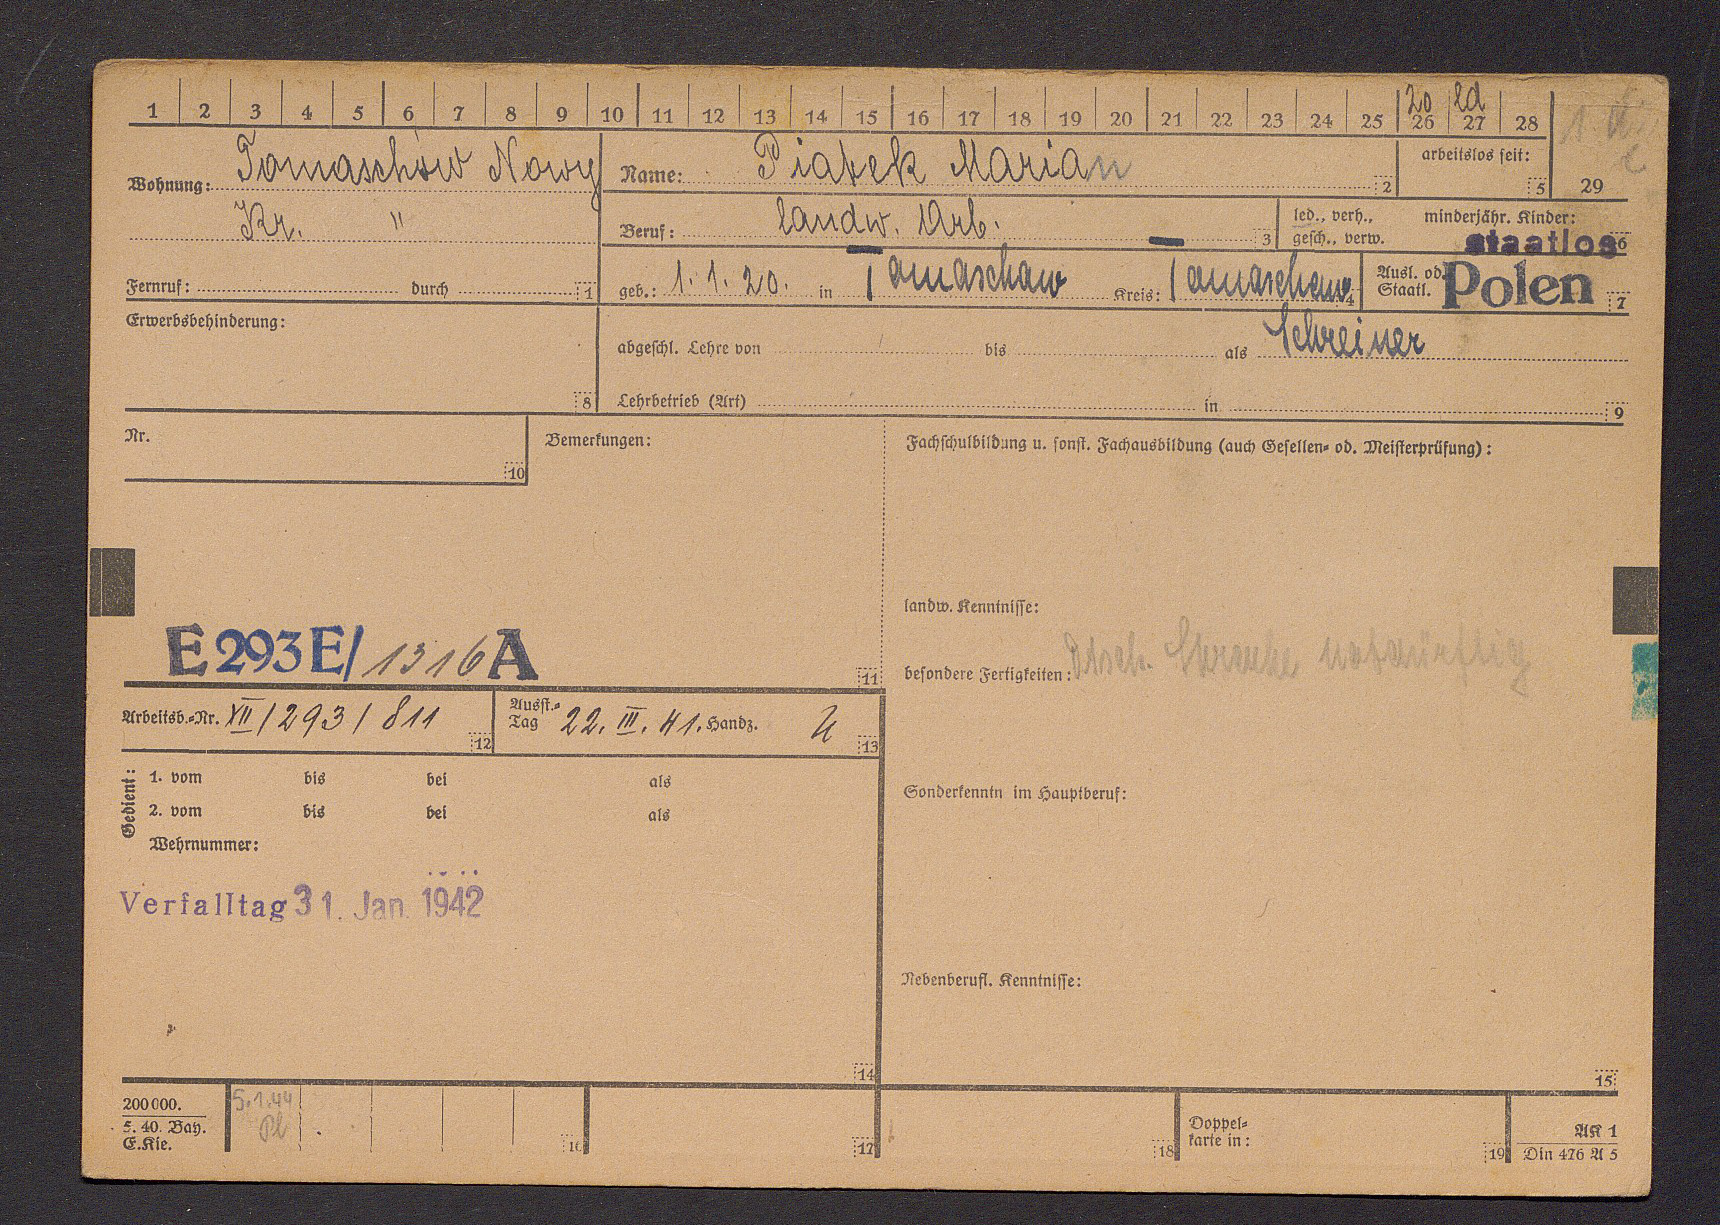 1 2 3 4 5 6 7 8 9 10 11 12 13 14 15 16 17 18 19 20 21 22 23 24 25 26 27 28
20 ld
29
Wohnung: Tomaschów Nowy
Kr. "
Fernruf: durch 1
Name: Piatek Marian 2
arbeitslos seit: 5
Beruf: landw. Arb. 3
led., verh., gesch., verw.
minderjähr. Kinder: 6
staatlos
geb.: 1. 1. 20. in Tomaschow Kreis: Tomaschow 4
Ausl. od. Staatl. Polen 7
Erwerbsbehinderung:
8
abgeschl. Lehre von bis als Schreiner
Lehrbetrieb (Art) in 9
Nr.
10
Bemerkungen:
Fachschulbildung u. sonst. Fachausbildung (auch Gesellen- od. Meisterprüfung):
landw. Kenntnisse:
besondere Fertigkeiten: Dtsch. Sprache notdürftig
E 293 E/ 1316 A
11
Arbeitsb.-Nr. XII/293/811 12
Ausst.-Tag 22. III. 41. Handz. 13
Gedient:
1. vom bis bei als
2. vom bis bei als
Wehrnummer:
Sonderkenntn im Hauptberuf:
Verfalltag 31. Jan. 1942
Nebenberufl. Kenntnisse:
14
15
200000.
5. 40. Bay.
E.Kie.
5.1.44
Pl
16
17
18
Doppelkarte in:
19
AK 1
Din 476 A 5